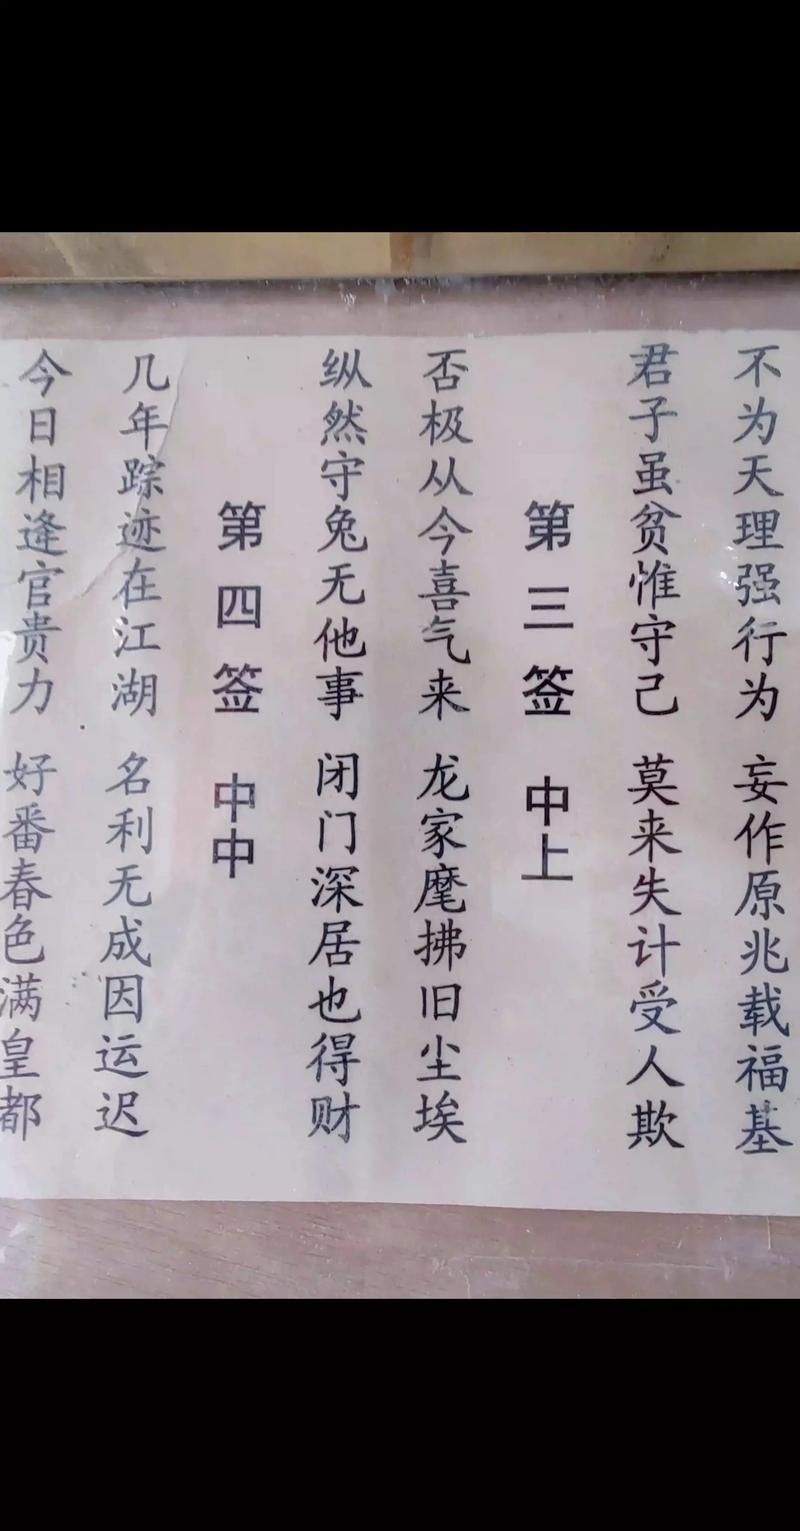 不为天理强行为 妄作原兆载福基
君子虽贫惟守己 莫来失计受人欺
第三签 中上
否极从今喜气来 龙家麾拂旧尘埃
纵然守兔无他事 闭门深居也得财
第四签 中中
几年踪迹在江湖 名利无成因运迟
今日相逢官贵力 好番春色满皇都